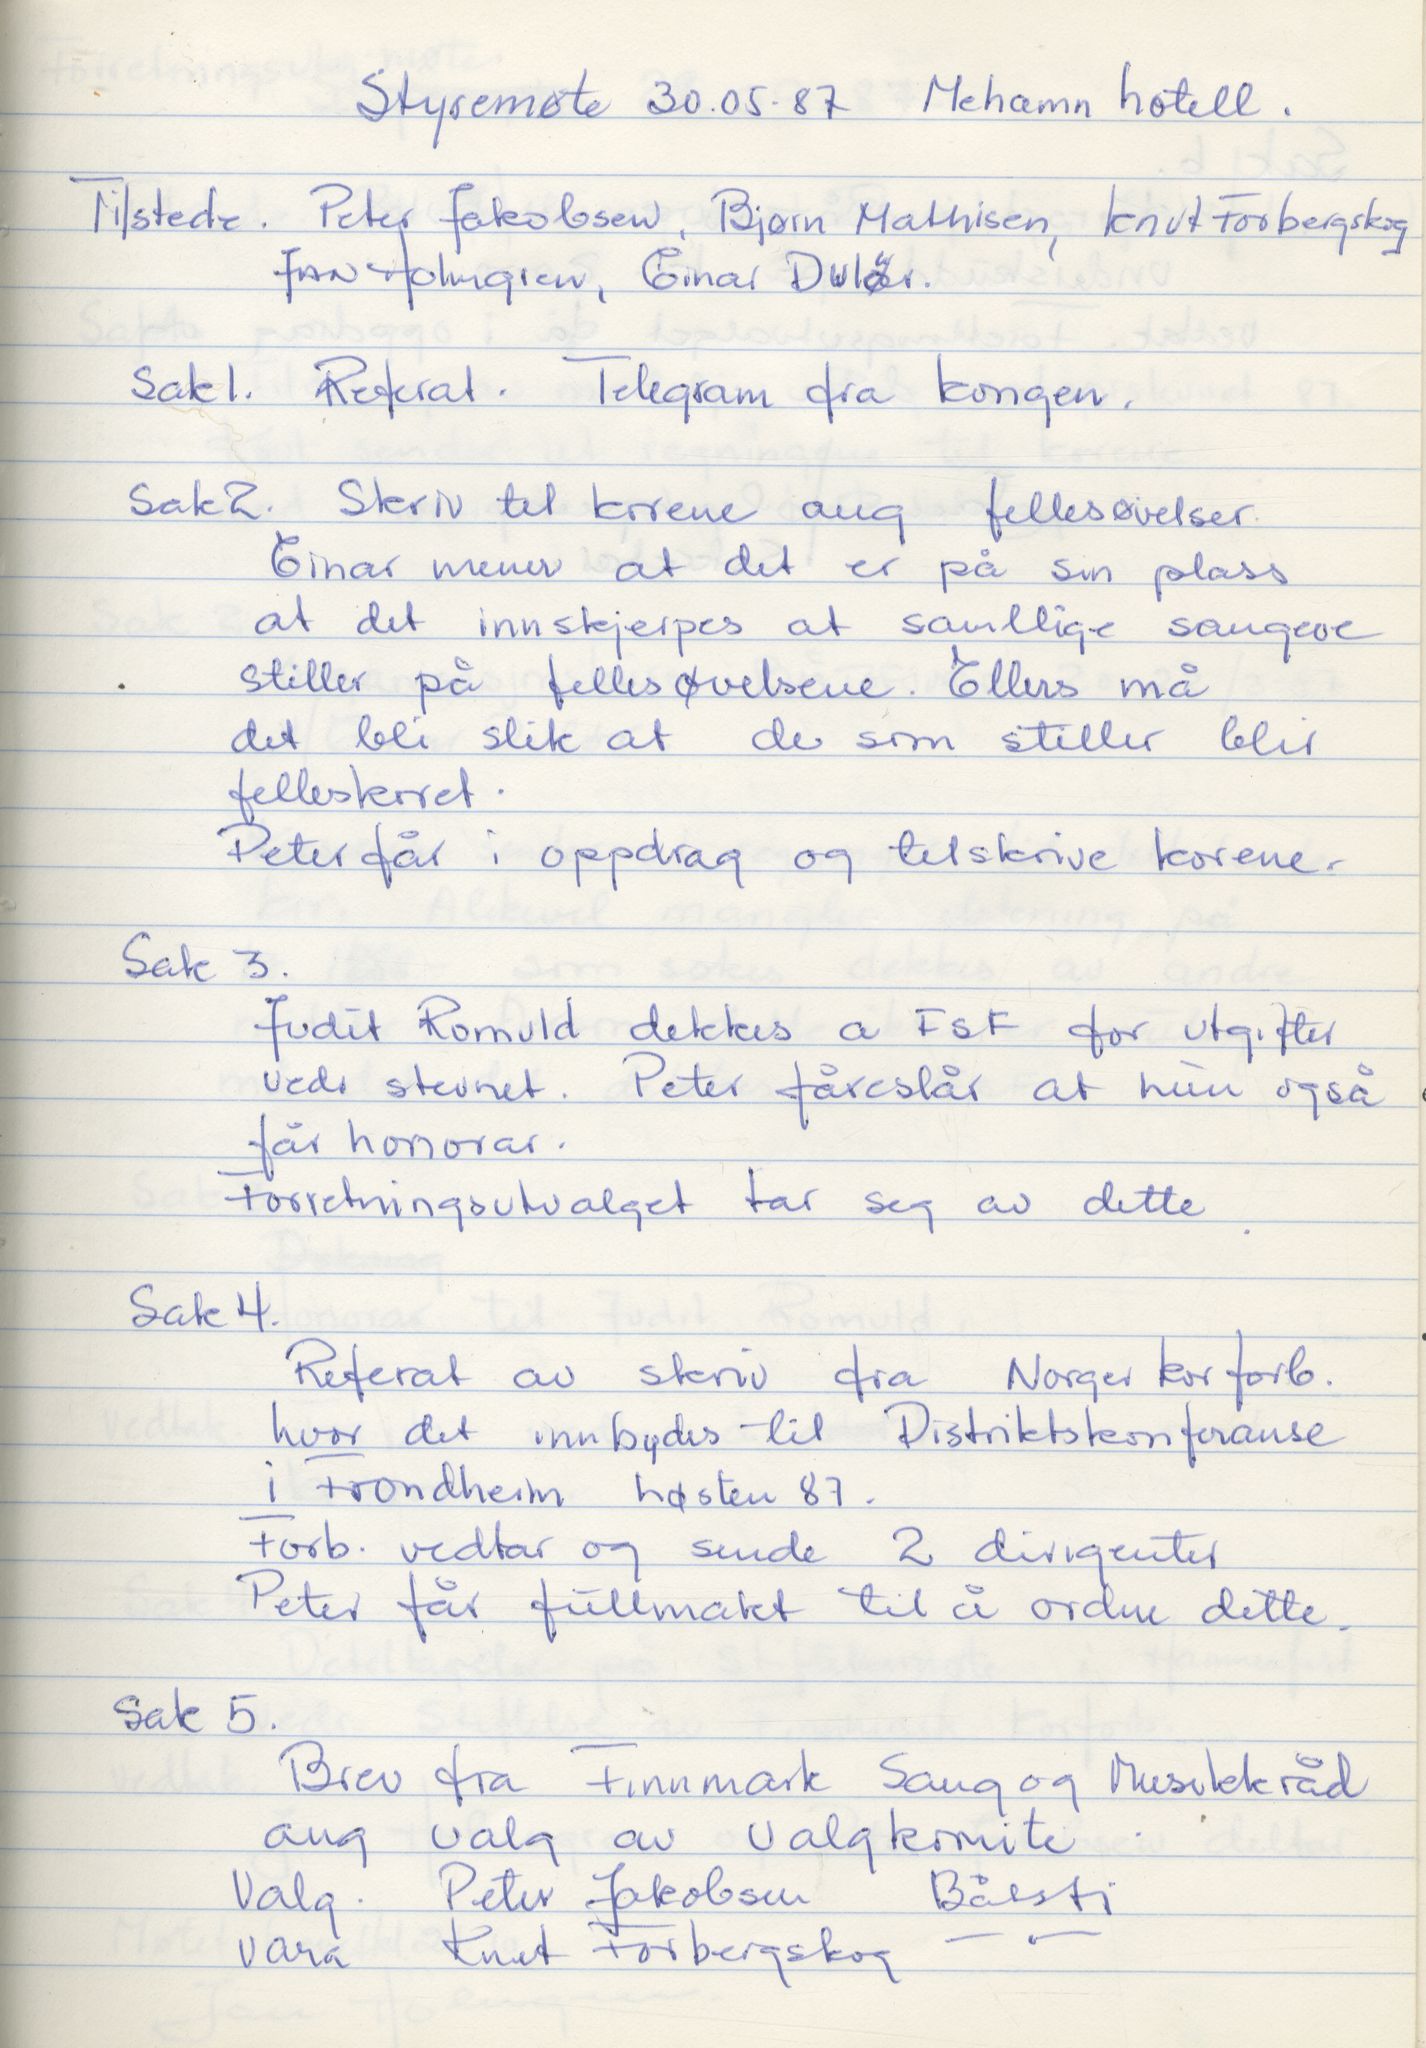 Styremøte 30.05.87 Mehamn hotell.
Tilstede. Peter Jakobsen, Bjørn Mathisen, Knut Forbergskog
Jan Holmgren, Einar
Sak 1. Referat. Telegram fra kongen.
Sak 2. Skriv til korene ang fellesøvelser.
Einar mener at det er på sin plass
at det innskjerpes at samtlige sangere
stiller på fellesøvelsene. Ellers må
det bli slik at de som stiller blir
felleskoret.
Peter får i oppdrag og tilskrive korene.
Sak 3.
Judit Romuld dekkes a FSF for utgifter
vedr stevnet. Peter føreslår at hun også
får honorar.
Forretningsutvalget tar seg av dette.
Sak 4.
Referat av skriv fra Norges korforb.
hvor det innbydes til Distriktskonferanse
i Trondheim høsten 87.
Forb. vedtar og sende 2 dirigenter
Peter får fullmakt til å ordne dette.
Sak 5.
Brev fra Finnmark Sang og Musikkråd
ang valg av valgkomite.
Valg. Peter Jakobsen
vara Knut Forbergskog — " —